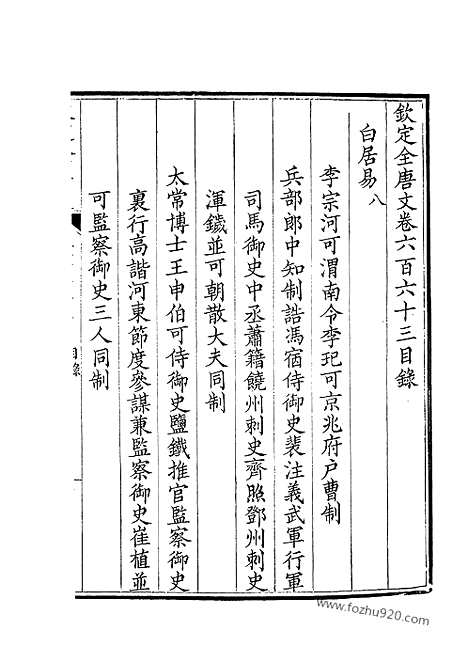 欽定全唐文卷六百六十三目錄
白居易八
李宗河可渭南令李玘可京兆府戶曹制
兵部郎中知制誥馮宿侍御史裴注義武軍行軍
司馬御史中丞蕭籍饒州刺史齊照鄧州刺史
渾鐬並可朝散大夫同制
太常博士王申伯可侍御史鹽鐵推官監察御史
裏行高諧河東節度參謀兼監察御史崔植並
可監察御史三人同制
目錄
一
www.fozhu920.com